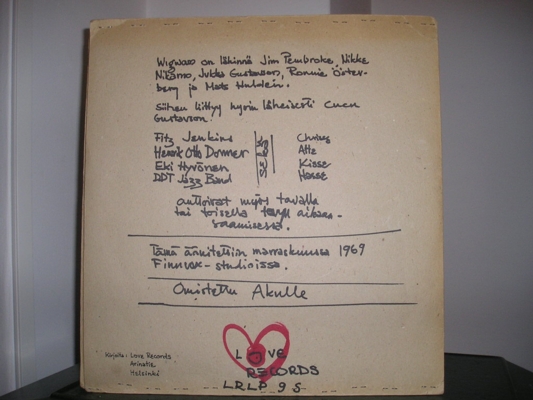 Wigwam on lähinnä Jim Pembroke, Nikke
Nikamo, Jukka Gustavson, Ronnie Öster-
berg ja Mats Huldén.
Siihen liittyy hyvin läheisesti Cuen
Gustavson.
Fitz Jenkins Chrisse
Henrik Otto Donner Atte
Eki Hyvönen Kisse
DDT Jazz Band Hasse
auttoivat myös tavalla
tai toisella levyn aikaan-
saamisessa.
Tämä äänitettiin marraskuussa 1969
Finnvox-studioissa.
Omistettu Akulle
Kirjoita: Love Records
Helsinki
Love
RECORDS
LRLP 9 S